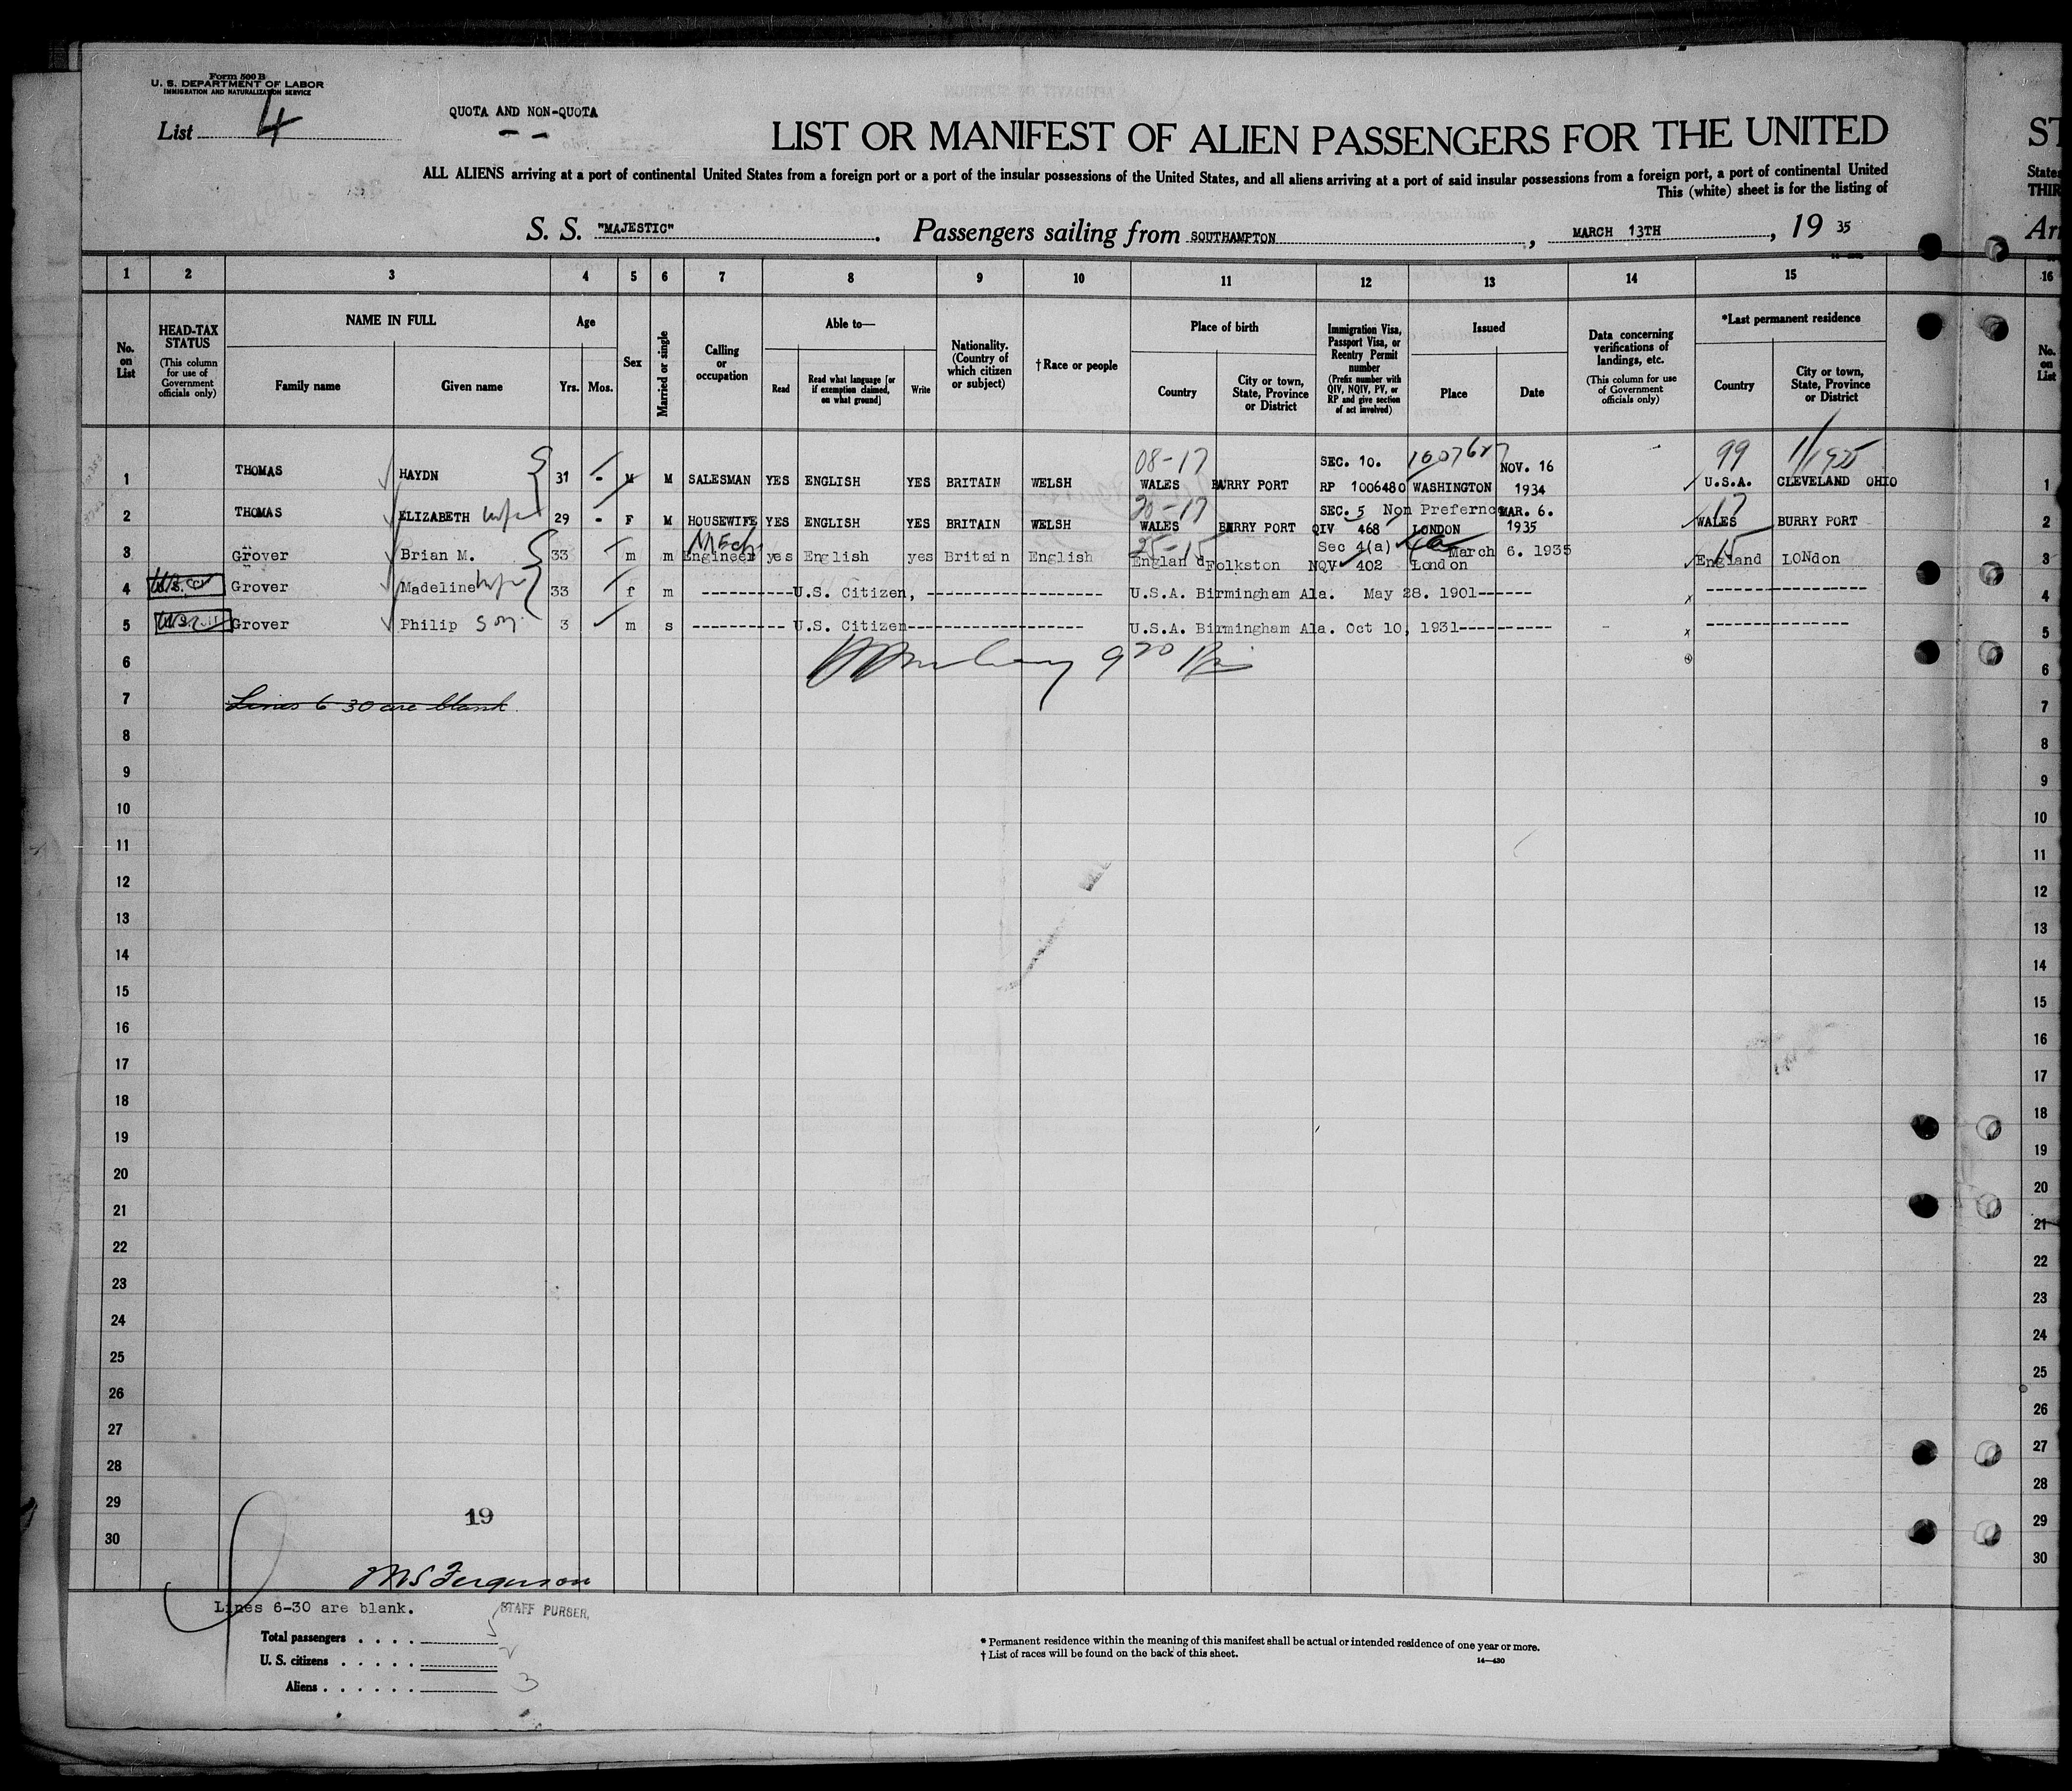 Form 500 B
U. S. DEPARTMENT OF LABOR
IMMIGRATION AND NATURALIZATION SERVICE
List 4
QUOTA AND NON-QUOTA
LIST OR MANIFEST OF ALIEN PASSENGERS FOR THE UNITED
ST
ALL ALIENS arriving at a port of continental United States from a foreign port or a port of the insular possessions of the United States, and all aliens arriving at a port of said insular possessions from a foreign port, a port of continental United
States
This (white) sheet is for the listing of
THIR
S. S. "MAJESTIC". Passengers sailing from SOUTHAMPTON, MARCH 13TH, 19 35
Arr
1 2 3 4 5 6 7 8 9 10 11 12 13 14 15 16
No. on List
HEAD-TAX STATUS
(This column for use of Government officials only)
NAME IN FULL
Family name
Given name
Age
Yrs. Mos.
Sex
Married or single
Calling or occupation
Able to—
Read
Read what language [or if exemption claimed, on what ground]
Write
Nationality. (Country of which citizen or subject)
† Race or people
Place of birth
Country
City or town, State, Province or District
Immigration Visa, Passport Visa, or Reentry Permit number
(Prefix number with QIV, NQIV, PV, or RP and give section of act involved)
Issued
Place
Date
Data concerning verifications of landings, etc.
(This column for use of Government officials only)
*Last permanent residence
Country
City or town, State, Province or District
No. on List
08-17 SEC. 10. NOV. 16 99
1 THOMAS HAYDN 31 - M M SALESMAN YES ENGLISH YES BRITAIN WELSH WALES BURRY PORT RP 1006480 WASHINGTON 1934 U.S.A. CLEVELAND OHIO 1
20-17 SEC. 5 Non Prefernce MAR. 6. 17
2 THOMAS ELIZABETH wife 29 - F M HOUSEWIFE YES ENGLISH YES BRITAIN WELSH WALES BURRY PORT QIV 468 LONDON 1935 WALES BURRY PORT 2
Mech 25-15 Sec 4(a) March 6. 1935 15
3 Grover Brian M. 33 m m Engineer yes English yes Britain English England Folkston NQV 402 London England LONdon 3
4 Grover Madeline wife 33 f m ----------U.S. Citizen, ------------------- U.S.A. Birmingham Ala. May 28. 1901------ ---------------- 4
5 Grover Philip son 3 m s ---------- U.S. Citizen------------------- U.S.A. Birmingham Ala. Oct 10, 1931---------- ---------------- 5
6 6
7 Lines 6-30 are blank 7
8 8
9 9
10 10
11 11
12 12
13 13
14 14
15 15
16 16
17 17
18 18
19 19
20 20
21 21
22 22
23 23
24 24
25 25
26 26
27 27
28 28
29 19 29
30 30
M S Ferguson
Lines 6-30 are blank.
STAFF PURSER,
Total passengers . . . . 5
U. S. citizens . . . . . 2
Aliens . . . . . . 3
* Permanent residence within the meaning of this manifest shall be actual or intended residence of one year or more.
† List of races will be found on the back of this sheet.
14—430